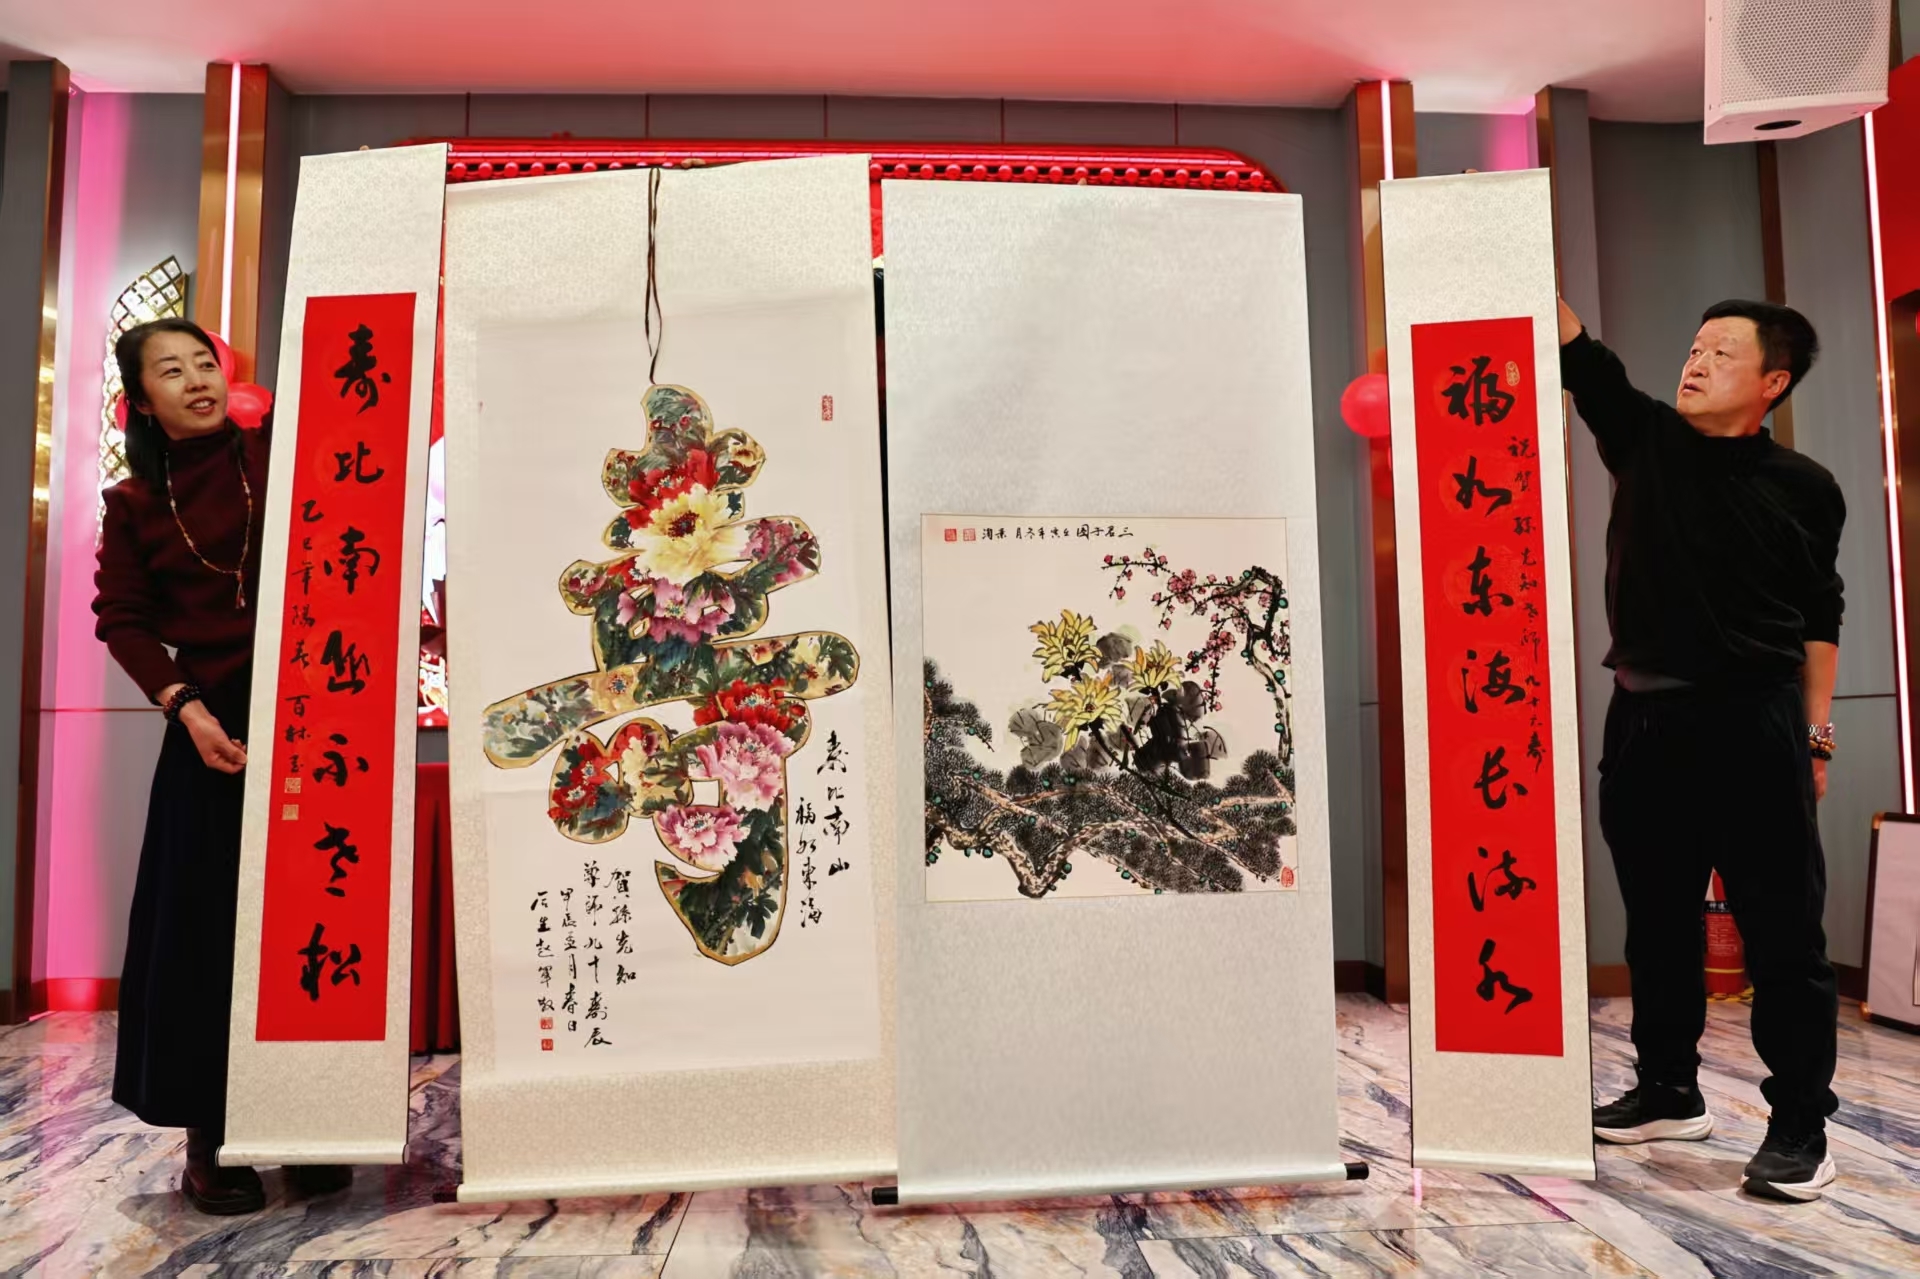 福如东海长流水
祝贺孙先知老师九十六寿
三君子图壬寅年冬月
寿
寿比南山
福如東海
賀孫先知
尊師九十寿辰
甲辰孟月春日
后生赵军敬
寿比南山不老松
乙巳年陽春 百林书